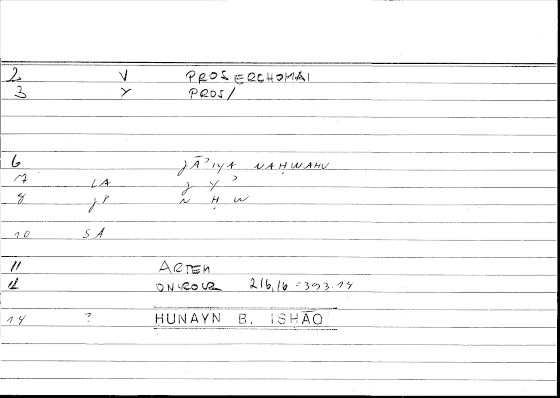 2 V PROSERCHOMAI
3 Y PROS/
6 ǧĀʾIYA NAḤWAHU
7 LA ǧ Y ʾ
8 ǧP N Ḥ W
10 SA
11 ARTEM
12 ONIROCR 216,16 = 393.14
14 ? HUNAYN B. ISHĀQ